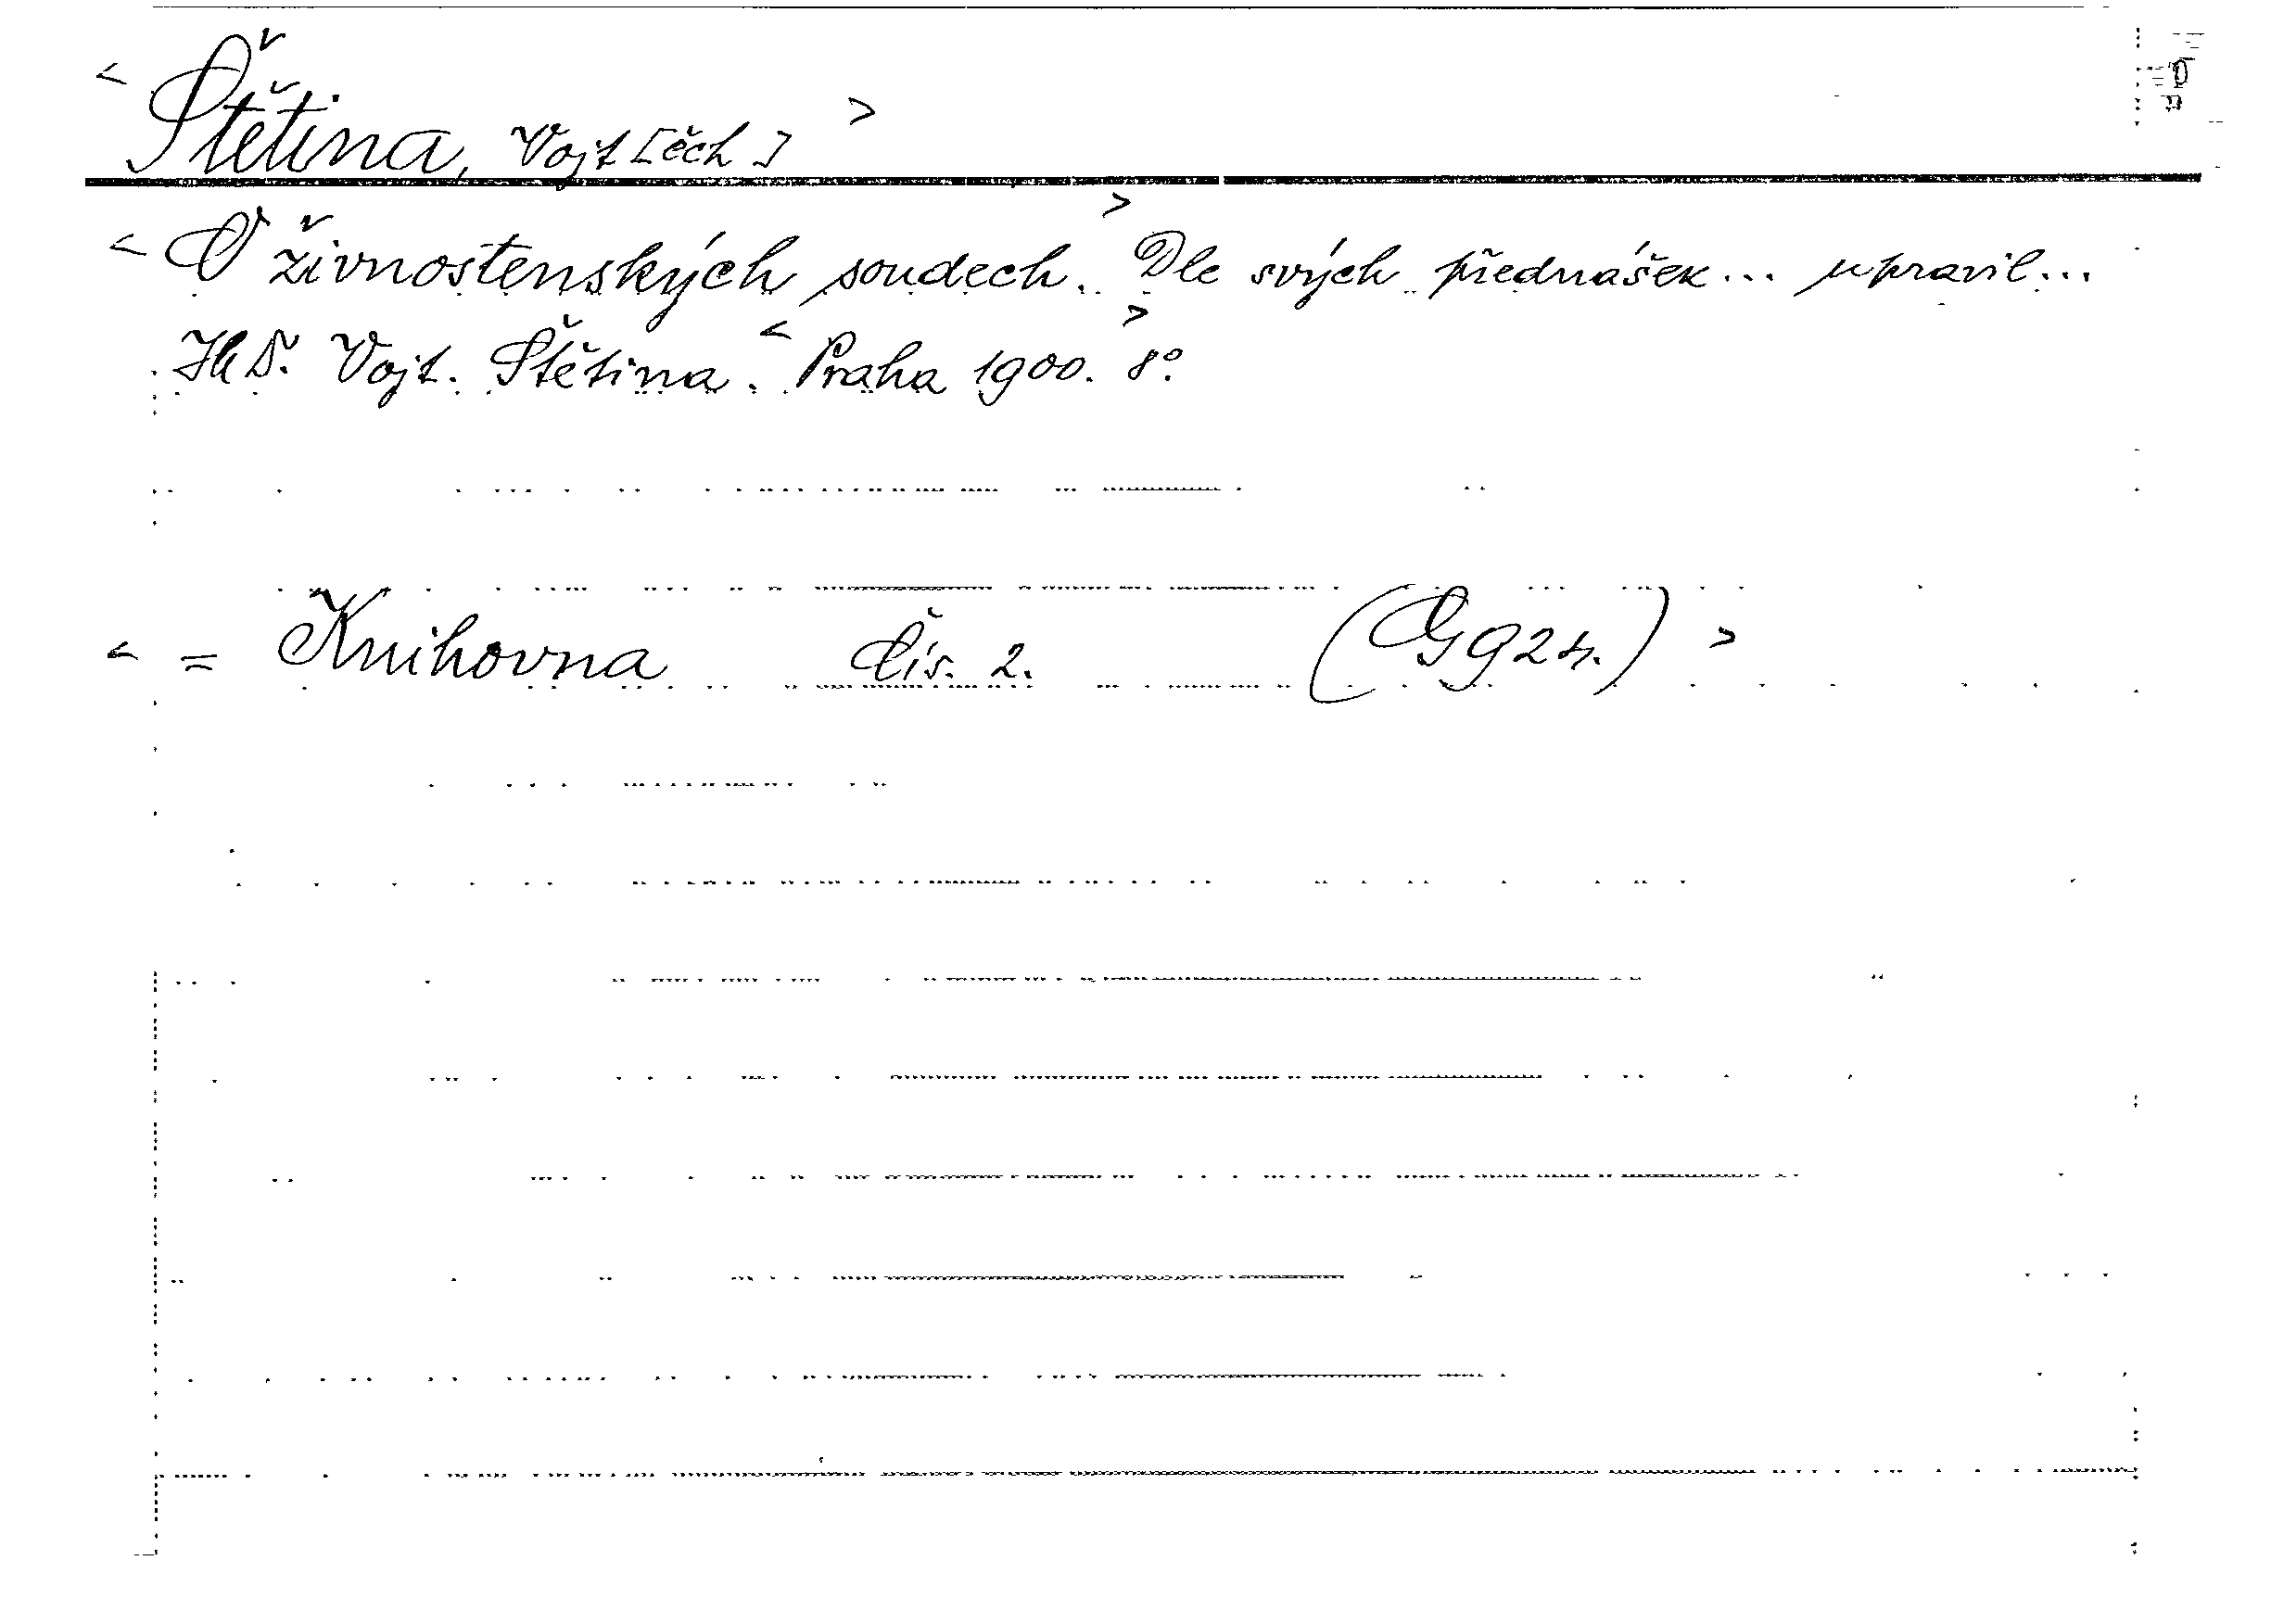 < Štětina, Vojt[ěch] >
< O živnostenských soudech. > Dle svých přednášek... upravil...
JUDr. Vojt. Štětina. < Praha 1900. 8°. >
< = Knihovna čís. 2. (Gg 24.) >